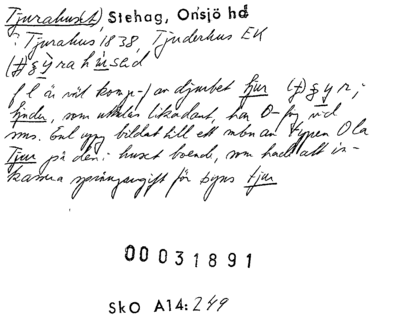 Tjurahuset, Stehag, Onsjö hd
: Tjurahus 1838, Tjuderhus EK
fl är väl komp-/ an djurbet tjur
tjuder, som uttalas likadant, har O-fog vid
sms. Enl uppg bildat till ett mbn an typen Ola
Tjur på den i huset boende, som hade att in-
kassera språngavgift för byns tjur
00031891
SkO A14:249